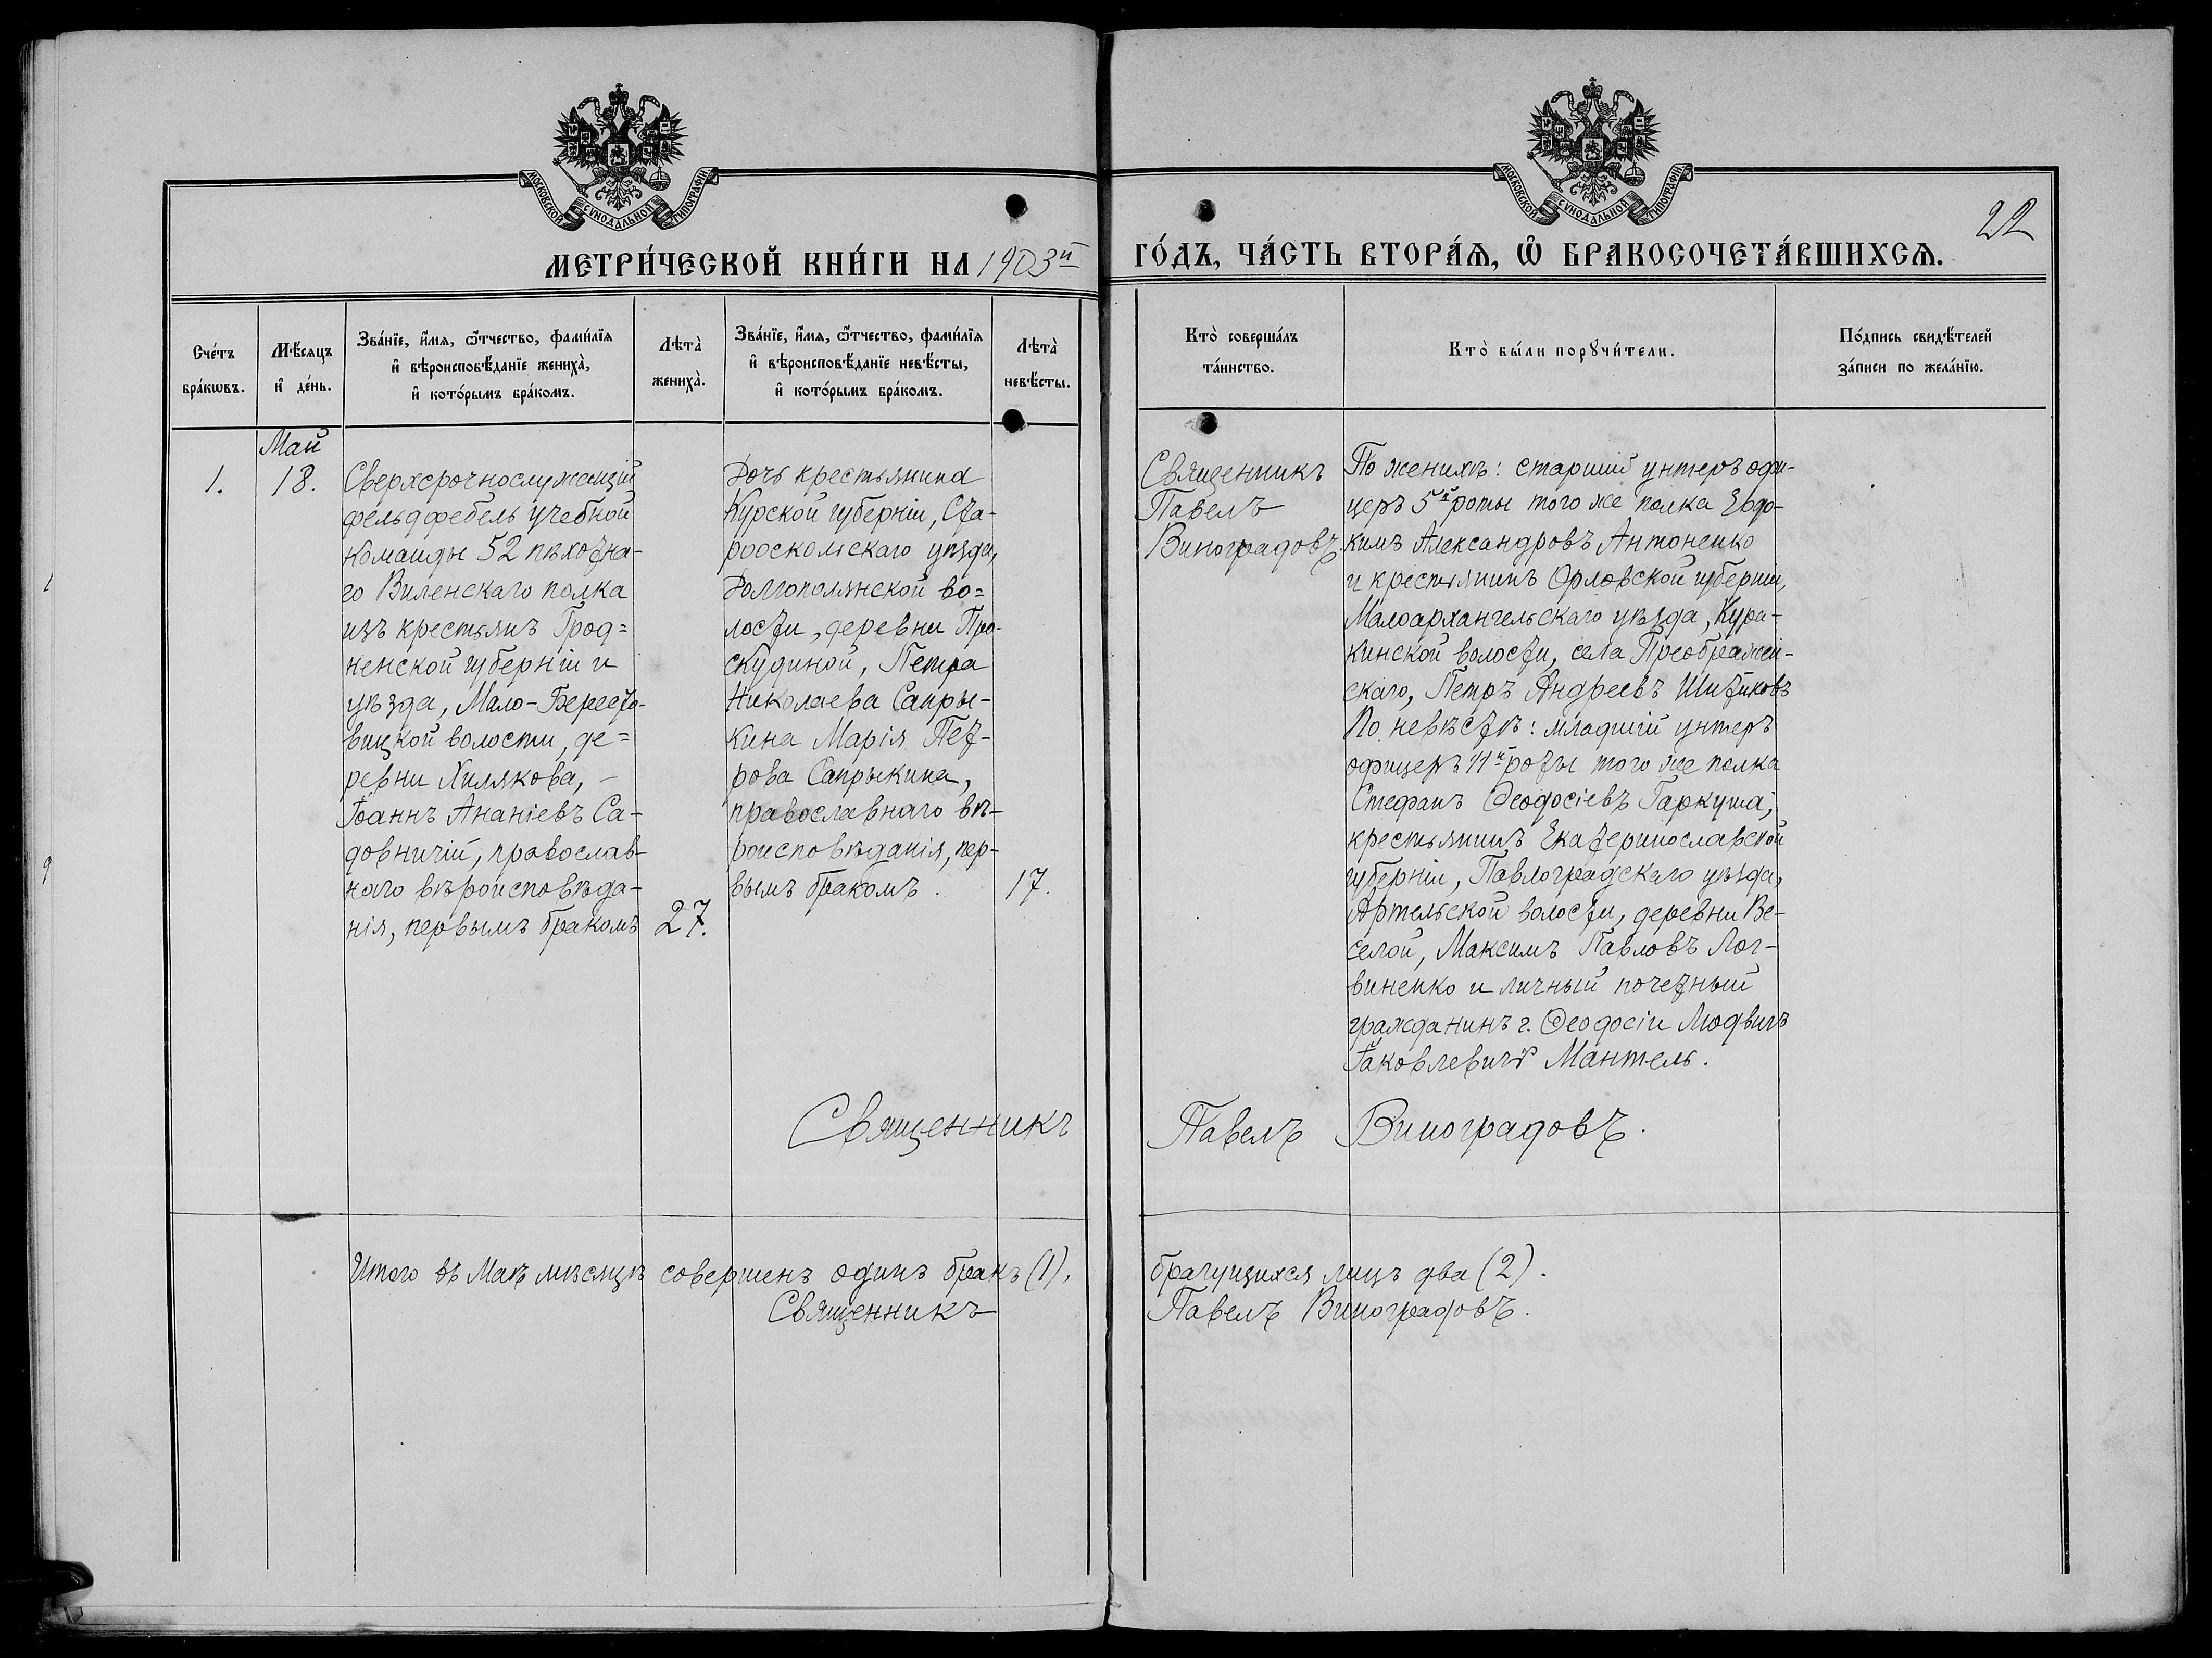 МОСКОВСКОЙ СѴНОДАЛЬНОЙ ТИПОГРАФІИ
МОСКОВСКОЙ СѴНОДАЛЬНОЙ ТИПОГРАФІИ
22
МЕТРИ́ЧЕСКОЙ КНИ́ГИ НА 1903й
ГО́ДЪ, ЧА́СТЬ ВТОРА́Ѧ, Ѽ БРАКОСОЧЕТА́ВШИХСѦ.
Сче́тъ
бра́кѡвъ.
Мѣ́сяцъ
и҆ де́нь.
Зва́нїе, и҆́мя, ѻ҆́тчество, фами́лїя
и҆ вѣроисповѣ́данїе жениха̀,
и҆ кото́рымъ бра́комъ.
Лѣта̀
жениха̀.
Зва́нїе, и҆́мя, ѻ҆́тчество, фами́лїя
и҆ вѣроисповѣ́данїе невѣ́сты,
и҆ кото́рымъ бра́комъ.
Лѣта̀
невѣ́сты.
Кто̀ соверша́лъ
та́инство.
Кто̀ бы́ли порꙋчи́тели.
По́дпись свидѣ́телей
за́писи по жела́нїю.
Май
1.
18.
Сверхсрочнослужащій
фельдфебель учебной
команды 52 пѣхотна-
го Виленскаго полка
изъ крестьянъ Грод=
ненской губерніи и
уѣзда, Мало-Бересто-
вицкой волости, де=
ревни Хилякова, –
Іоаннъ Ананіевъ Са-
довничій, православ-
наго вѣроисповѣда-
нія, первымъ бракомъ
27.
Дочь крестьянина
Курской губерніи, Ста-
рооскольскаго уѣзда,
Долгополянской во=
лости, деревни Про-
скудиной, Петра
Николаева Сапры-
кина Марія Пет-
рова Сапрыкина,
православнаго вѣ-
роисповѣданія, пер-
вымъ бракомъ.
17.
Священникъ
Павелъ
Виноградовъ.
По женихѣ: старшій унтеръ офи-
церъ 5й роты того же полка Евдо-
кимъ Александровъ Антоненко
и крестьянинъ Орловской губерніи,
Малоархангельскаго уѣзда, Кура-
кинской волости, села Преображен-
скаго, Петръ Андреевъ Шитиковъ
По невѣстѣ: младшій унтеръ
офицеръ 11й роты того же полка
Стефанъ Ѳеодосіевъ Гаркуша,
крестьянинъ Екатеринославской
губерніи, Павлоградскаго уѣзда,
Артельской волости, деревни Ве-
селой, Максимъ Павловъ Лог-
виненко и личный почетный
гражданинъ г. Ѳеодосіи Людвигъ
Іаковлевичъ Мантель.
Священникъ Павелъ Виноградовъ.
Итого въ Маѣ мѣсяцѣ совершенъ одинъ бракъ (1), брачущихся лицъ два (2).
Священникъ Павелъ Виноградовъ.